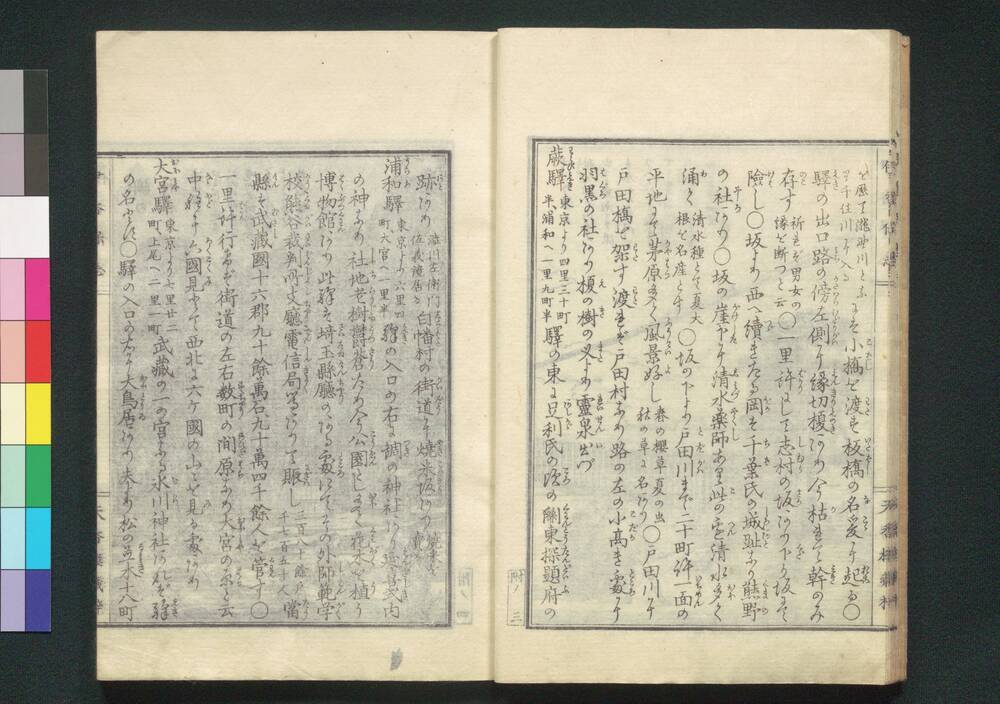 を歴て瀧野川といふ
千住川に入る にある小橋を渡る板橋の名爰に起る〇
驛の出口路の傍左側に縁切榎あり今枯れて幹のみ
存す 祈れば男女の縁を断つと云 〇一里許にして志村の坂あり下り坂にて
險し〇坂より西へ續きたる岡を千葉氏の城趾なり熊野
の社あり〇坂の崖下に清水藥師あり此の邊清水多く
涌く 清水種とて夏大根を名産とす 〇坂の下より戸田川まで二十町許一面の
平地にて茅原多く風景好し 春の櫻草夏の虫秋の草に名あり 〇戸田川に
戸田橋を架す渡れば戸田村あり路の左の小高き處に
羽黒の社あり榎の樹の又より靈泉出づ
蕨驛 東京より四里三十町半浦和へ一里九町半 驛の東に足利氏の頃の關東探題府の
附ノ三
跡あり 澁川左衛門佐義鏡居る 白幡村の街道に燒米坂あり
浦和驛 東京より六里四町大宮へ一里半 驛の入口の右に調の神社あり延喜式内
の神なり社地老樹欝蒼たり今公園とし多く花木を植う
博物館あり此驛を埼玉縣廳のある處にてその外師範學
校熊谷裁判所支廳電信局等ありて賑し 二百八十餘戸千七百五十人 當
縣を武藏國十六郡九十餘萬石九十萬四千餘人を管す〇
一里許行けば街道の左右数町の間原あり大宮の原と云
中程より六國見とて西北に六ケ國の山を見る處あり
大宮驛 東京より七里廿二町上尾へ二里一町 武藏の一の宮なる氷川神社あれば驛
の名となる〇驛の入口の右に大鳥居あり夫より松の並木十八町
附ノ四